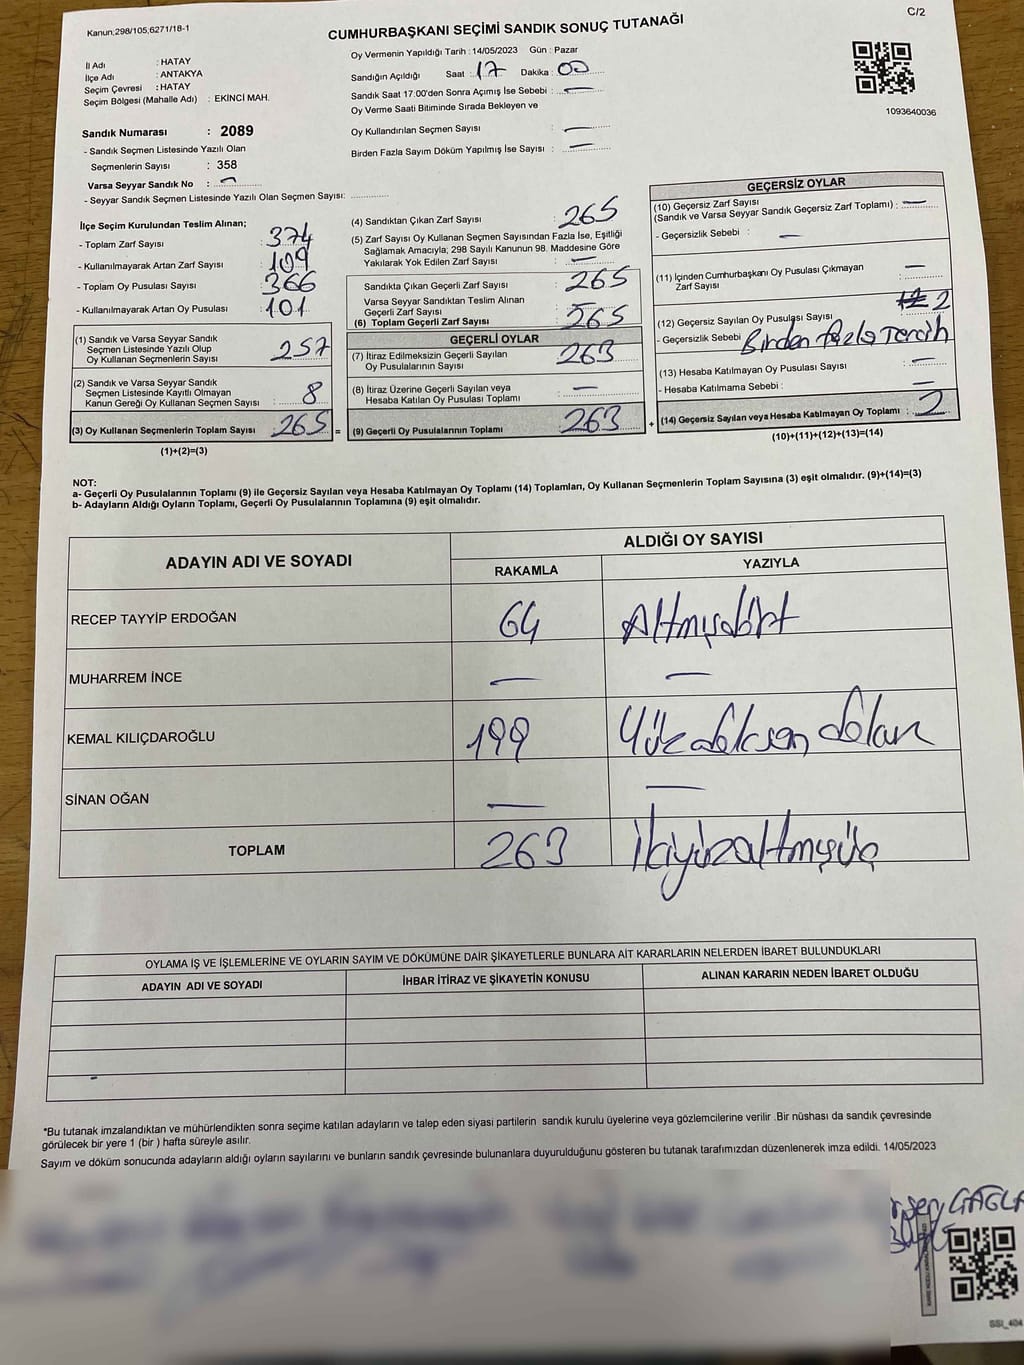 Kanun;298/105,6271/18-1
CUMHURBAŞKANI SEÇİMİ SANDIK SONUÇ TUTANAĞI
C/2
İl Adı : HATAY
İlçe Adı : ANTAKYA
Seçim Çevresi : HATAY
Seçim Bölgesi (Mahalle Adı) : EKİNCİ MAH.
Oy Vermenin Yapıldığı Tarih : 14/05/2023 Gün : Pazar
Sandığın Açıldığı Saat : 17 Dakika : 00
Sandık Saat 17:00'den Sonra Açımış İse Sebebi : —
Oy Verme Saati Bitiminde Sırada Bekleyen ve
Oy Kullandırılan Seçmen Sayısı : —
Birden Fazla Sayım Döküm Yapılmış İse Sayısı : —
1093640036
Sandık Numarası : 2089
- Sandık Seçmen Listesinde Yazılı Olan
Seçmenlerin Sayısı : 358
Varsa Seyyar Sandık No : —
- Seyyar Sandık Seçmen Listesinde Yazılı Olan Seçmen Sayısı:
İlçe Seçim Kurulundan Teslim Alınan;
- Toplam Zarf Sayısı : 374
- Kullanılmayarak Artan Zarf Sayısı : 109
- Toplam Oy Pusulası Sayısı : 366
- Kullanılmayarak Artan Oy Pusulası : 101
(1) Sandık ve Varsa Seyyar Sandık
Seçmen Listesinde Yazılı Olup
Oy Kullanan Seçmenlerin Sayısı : 257
(2) Sandık ve Varsa Seyyar Sandık
Seçmen Listesinde Kayıtlı Olmayan
Kanun Gereği Oy Kullanan Seçmen Sayısı : 8
(3) Oy Kullanan Seçmenlerin Toplam Sayısı : 265 =
(1)+(2)=(3)
(4) Sandıktan Çıkan Zarf Sayısı : 265
(5) Zarf Sayısı Oy Kullanan Seçmen Sayısından Fazla İse, Eşitliği
Sağlamak Amacıyla; 298 Sayılı Kanunun 98. Maddesine Göre
Yakılarak Yok Edilen Zarf Sayısı : —
Sandıkta Çıkan Geçerli Zarf Sayısı : 265
Varsa Seyyar Sandıktan Teslim Alınan
Geçerli Zarf Sayısı
(6) Toplam Geçerli Zarf Sayısı : 265
GEÇERLİ OYLAR
(7) İtiraz Edilmeksizin Geçerli Sayılan
Oy Pusulasının Sayısı : 263
(8) İtiraz Üzerine Geçerli Sayılan veya
Hesaba Katılan Oy Pusulası Toplamı : —
(9) Geçerli Oy Pusulalarının Toplamı : 263 +
GEÇERSİZ OYLAR
(10) Geçersiz Zarf Sayısı
(Sandık ve Varsa Seyyar Sandık Geçersiz Zarf Toplamı) : —
- Geçersizlik Sebebi : —
(11) İçinden Cumhurbaşkanı Oy Pusulası Çıkmayan
Zarf Sayısı : —
(12) Geçersiz Sayılan Oy Pusulası Sayısı : 2
- Geçersizlik Sebebi Birden fazla Tercih
(13) Hesaba Katılmayan Oy Pusulası Sayısı : —
- Hesaba Katılmama Sebebi : —
(14) Geçersiz Sayılan veya Hesaba Katılmayan Oy Toplamı : 2
(10)+(11)+(12)+(13)=(14)
NOT:
a- Geçerli Oy Pusulalarının Toplamı (9) ile Geçersiz Sayılan veya Hesaba Katılmayan Oy Toplamı (14) Toplamları, Oy Kullanan Seçmenlerin Toplam Sayısına (3) eşit olmalıdır. (9)+(14)=(3)
b- Adayların Aldığı Oyların Toplamı, Geçerli Oy Pusulalarının Toplamına (9) eşit olmalıdır.
ADAYIN ADI VE SOYADI
ALDIĞI OY SAYISI
RAKAMLA YAZIYLA
RECEP TAYYİP ERDOĞAN 64 Altmışdört
MUHARREM İNCE — —
KEMAL KILIÇDAROĞLU 199 Yüzdoksan dokuz
SİNAN OĞAN — —
TOPLAM 263 İkiyüzaltmışüç
OYLAMA İŞ VE İŞLEMLERİNE VE OYLARIN SAYIM VE DÖKÜMÜNE DAİR ŞİKAYETLERLE BUNLARA AİT KARARLARIN NELERDEN İBARET BULUNDUKLARI
ADAYIN ADI VE SOYADI İHBAR İTİRAZ VE ŞİKAYETİN KONUSU ALINAN KARARIN NEDEN İBARET OLDUĞU
*Bu tutanak imzalandıktan ve mühürlendikten sonra seçime katılan adayların ve talep eden siyasi partilerin sandık kurulu üyelerine veya gözlemcilerine verilir .Bir nüshası da sandık çevresinde
görülecek bir yere 1 (bir ) hafta süreyle asılır.
Sayım ve döküm sonucunda adayların aldığı oyların sayılarını ve bunların sandık çevresinde bulunanlara duyurulduğunu gösteren bu tutanak tarafımızdan düzenlenerek imza edildi. 14/05/2023
SSI_404